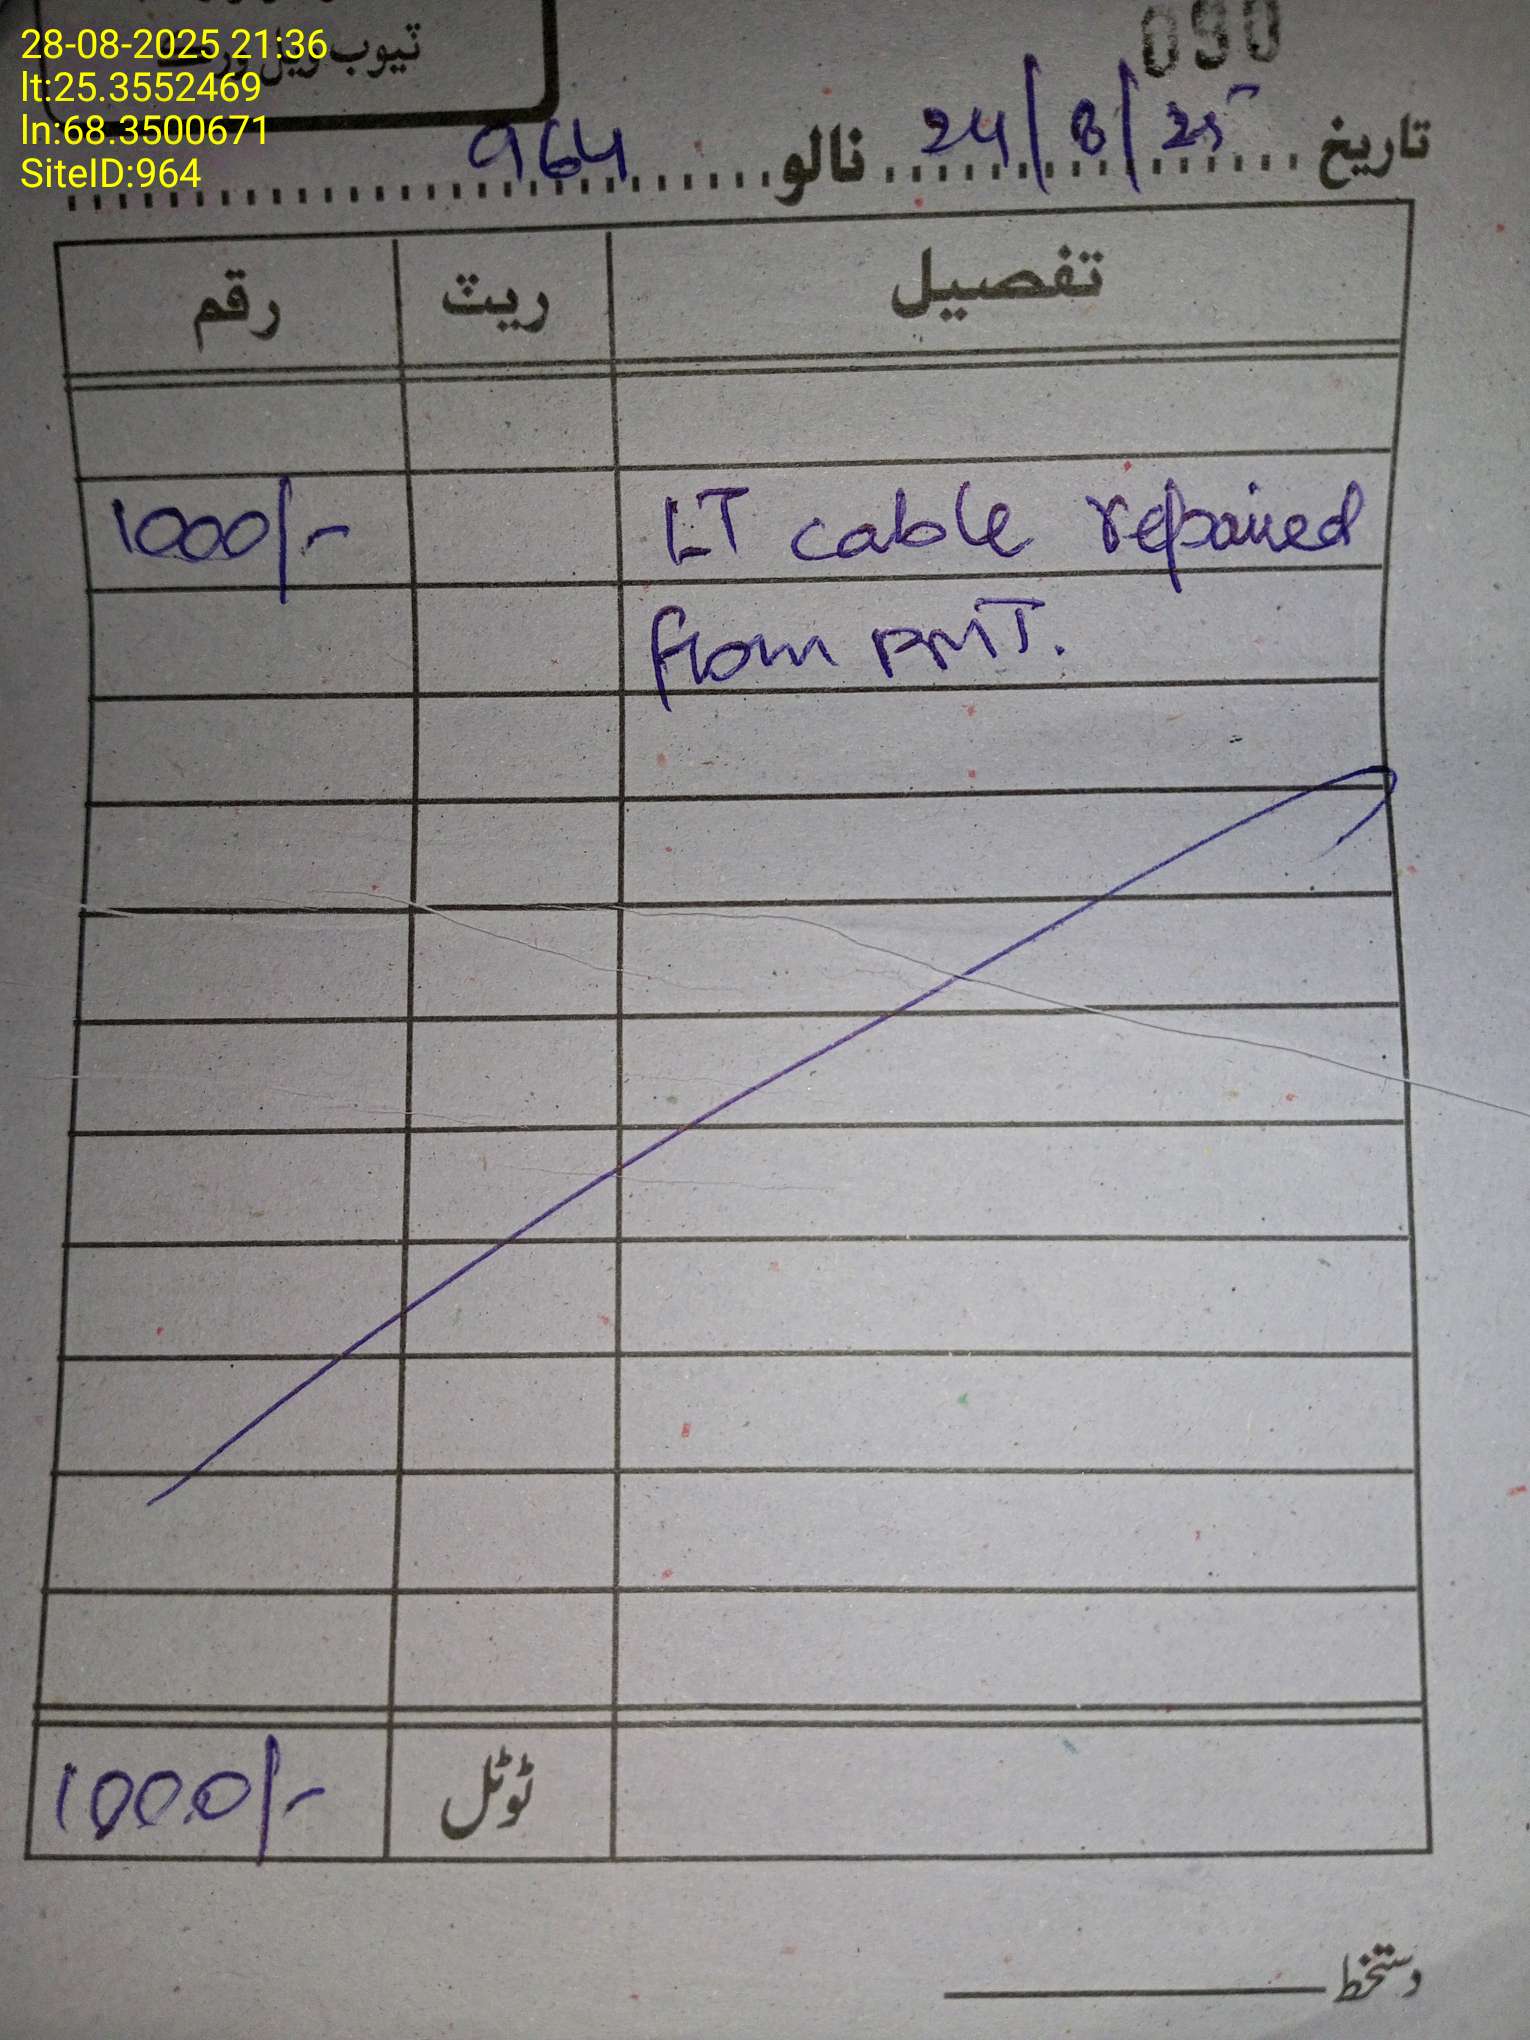 28-08-2025 21:36
lt:25.3552469
ln:68.3500671
SiteID:964
ٽيوب ويل ورڪ
090
تاريخ 24/8/25 نالو 964
تفصيل ريٽ رقم
LT cable repaired 1000/-
from PMT.
ٹوٹل 1000/-
دستخط